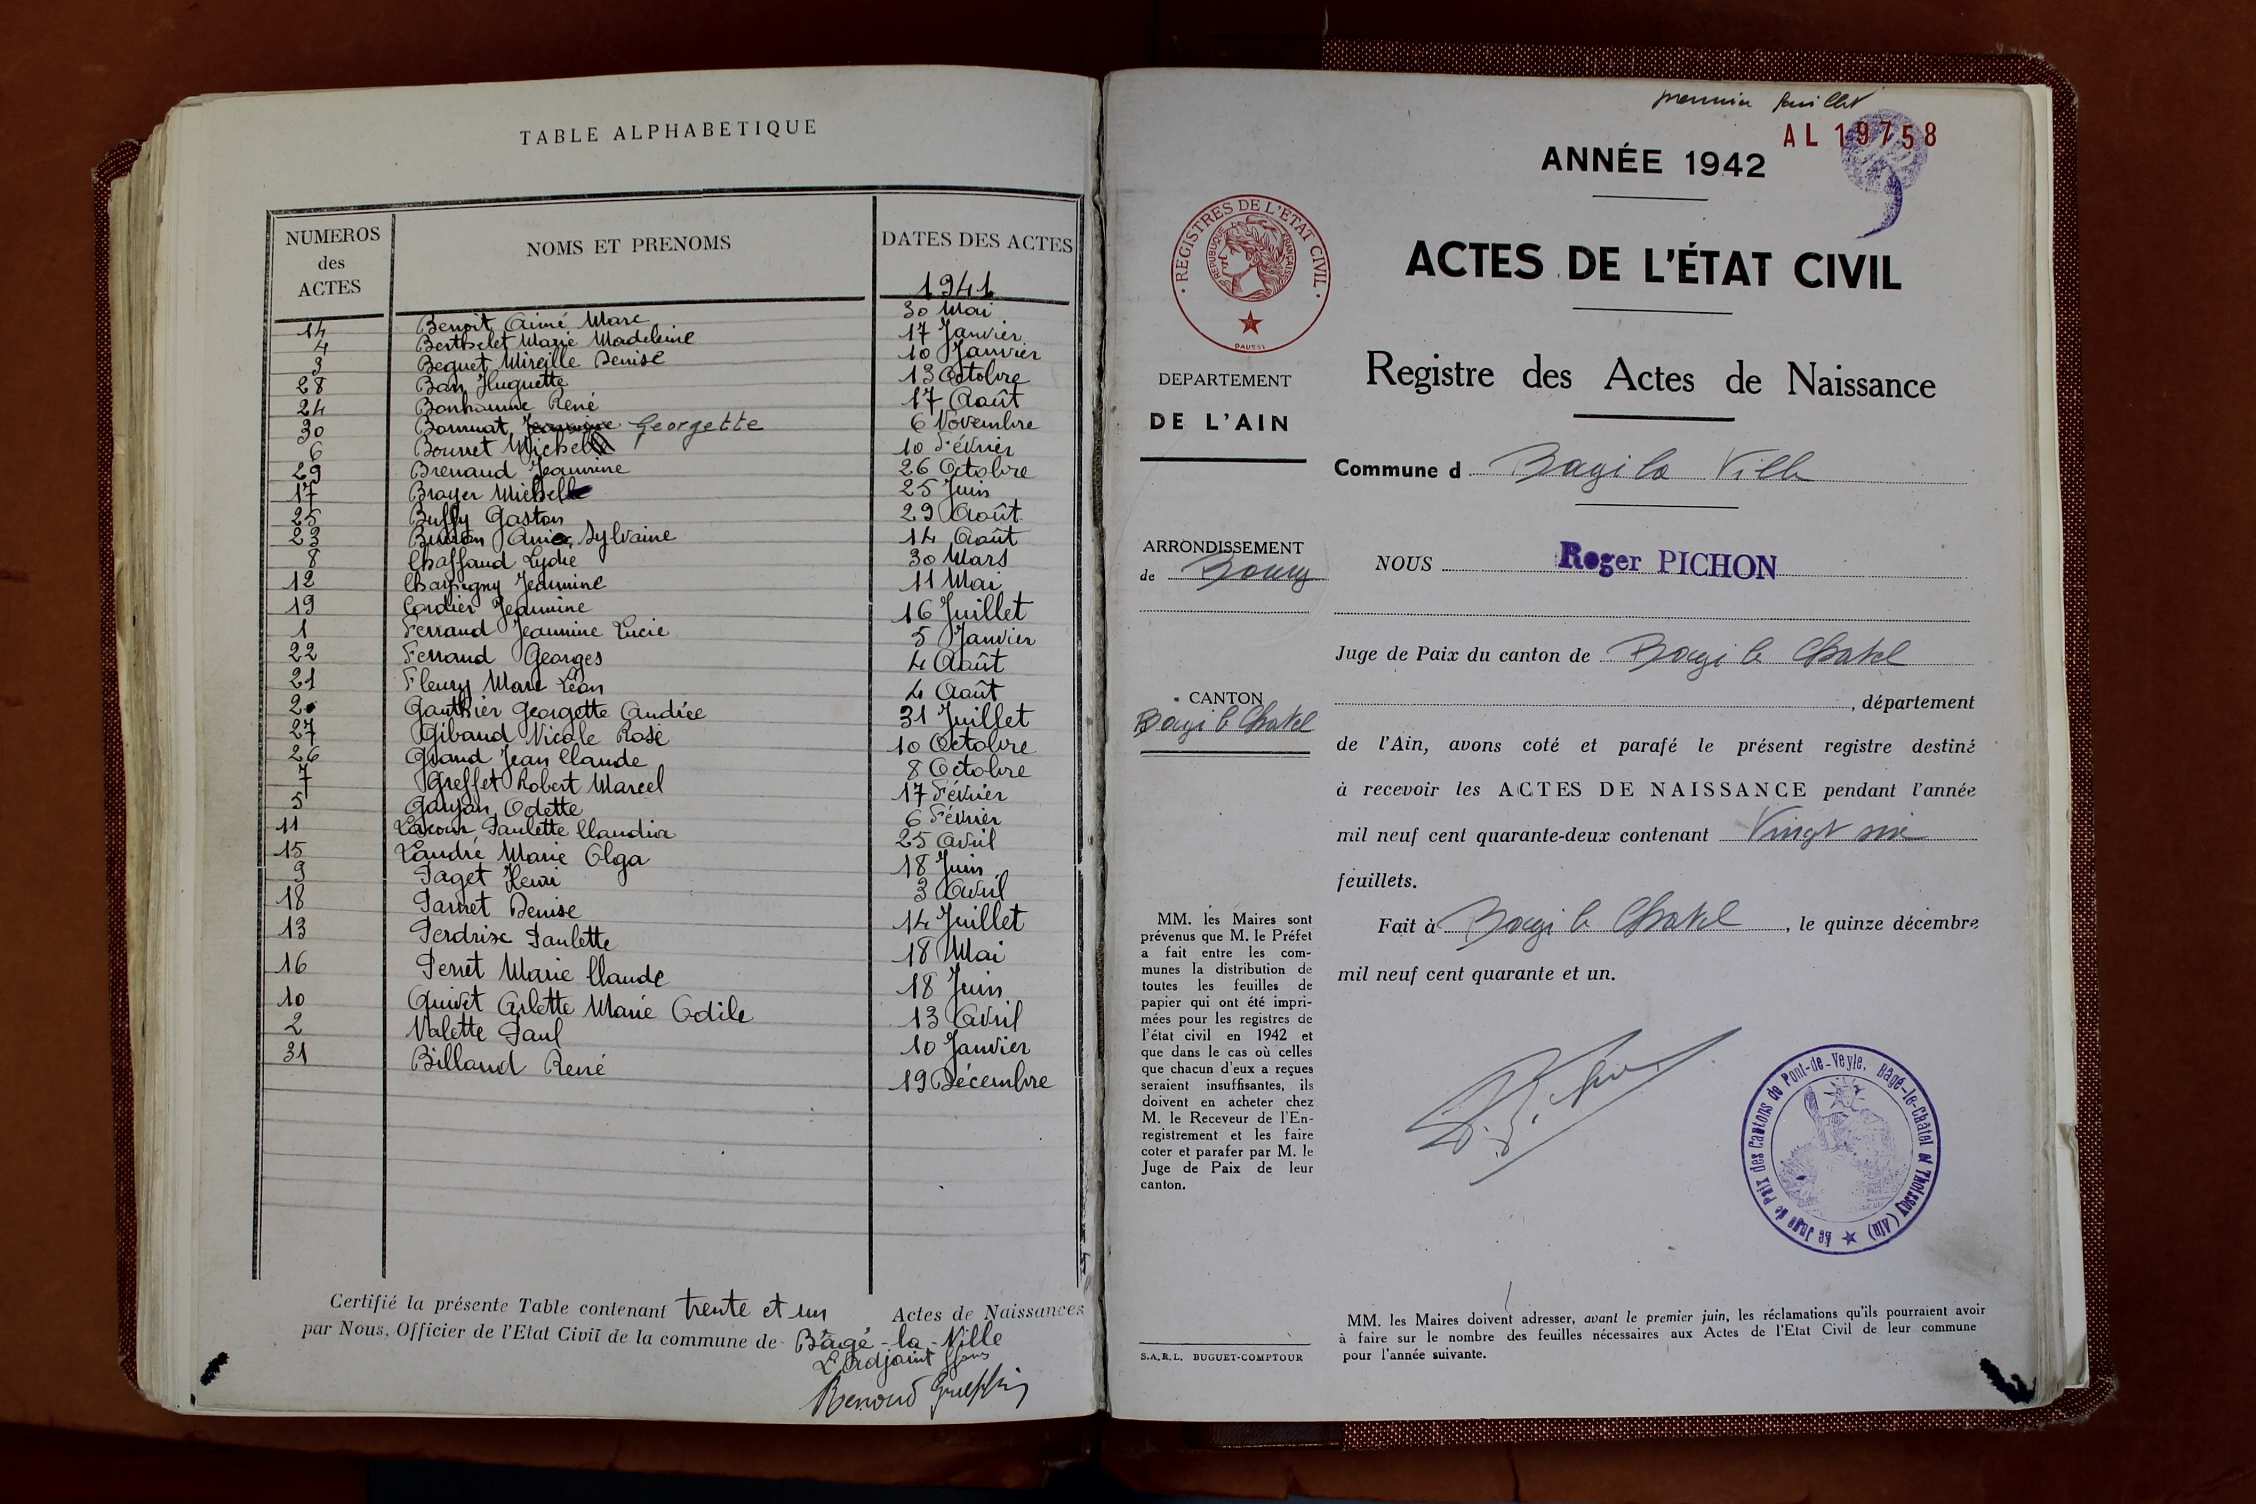 TABLE ALPHABETIQUE
NUMEROS des ACTES NOMS ET PRENOMS DATES DES ACTES
1941
14 Benoit Aimé Marc 30 Mai
4 Berthelet Marie Madeleine 17 Janvier
3 Beguet Mireille Denise 10 Janvier
28 Ban Huguette 13 Octobre
24 Bonhomme René 17 Août
30 Bonnat Georgette 6 Novembre
6 Bonnet Michel 10 Février
29 Brenaud Jeannine 26 Octobre
17 Brayer Michel 25 Juin
25 Buffy Gaston 29 Août
23 Sylvaine 14 Août
8 Chaffaud Lydie 30 Mars
12 Champigny Jeannine 11 Mai
19 Cordier Jeannine 16 Juillet
1 Ferrand Jeannine Lucie 5 Janvier
22 Ferrand Georges 4 Août
21 Fleury Marc Léon 4 Août
Gauthier Georgette Andrée 31 Juillet
27 Giband Nicole Rose 10 Octobre
26 Grand Jean Claude 8 Octobre
7 Greffet Robert Marcel 17 Février
5 Odette 6 Février
11 Lacour Paulette Claudia 25 Avril
15 Landré Marie Olga 18 Juin
9 Paget Henri 3 Avril
18 Parnet Denise 14 Juillet
13 Perdrix Paulette 18 Mai
16 Perret Marie Claude 18 Juin
10 Guivet Arlette Marie Odile 13 Avril
2 Valette Paul 10 Janvier
31 Billaud René 19 Décembre
Certifié la présente Table contenant trente et un Actes de Naissances
par Nous, Officier de l'Etat Civil de la commune de Bâgé-la-Ville
L'Adjoint
premier feuillet
AL 19758
ANNÉE 1942
ACTES DE L'ÉTAT CIVIL
Registre des Actes de Naissance
REGISTRES DE L'ETAT CIVIL
REPUBLIQUE FRANÇAISE
DEPARTEMENT
DE L'AIN
Commune d Bagé la Ville
ARRONDISSEMENT
de Bourg
NOUS Roger PICHON
Juge de Paix du canton de Bagé le Chatel
, département
CANTON
Bagé le Chatel
de l'Ain, avons coté et parafé le présent registre destiné
à recevoir les ACTES DE NAISSANCE pendant l'année
mil neuf cent quarante-deux contenant Vingt six
feuillets.
Fait à Bagé le Chatel, le quinze décembre
mil neuf cent quarante et un.
MM. les Maires sont
prévenus que M. le Préfet
a fait entre les com-
munes la distribution de
toutes les feuilles de
papier qui ont été impri-
mées pour les registres de
l'état civil en 1942 et
que dans le cas où celles
que chacun d'eux a reçues
seraient insuffisantes, ils
doivent en acheter chez
M. le Receveur de l'En-
registrement et les faire
coter et parafer par M. le
Juge de Paix de leur
canton.
Le Juge de Paix des Cantons de Pont-de-Veyle, Bâgé-le-Châtel et Thoissey (Ain)
MM. les Maires doivent adresser, avant le premier juin, les réclamations qu'ils pourraient avoir
à faire sur le nombre des feuilles nécessaires aux Actes de l'Etat Civil de leur commune
pour l'année suivante.
S.A.R.L. BUGUET-COMPTOUR